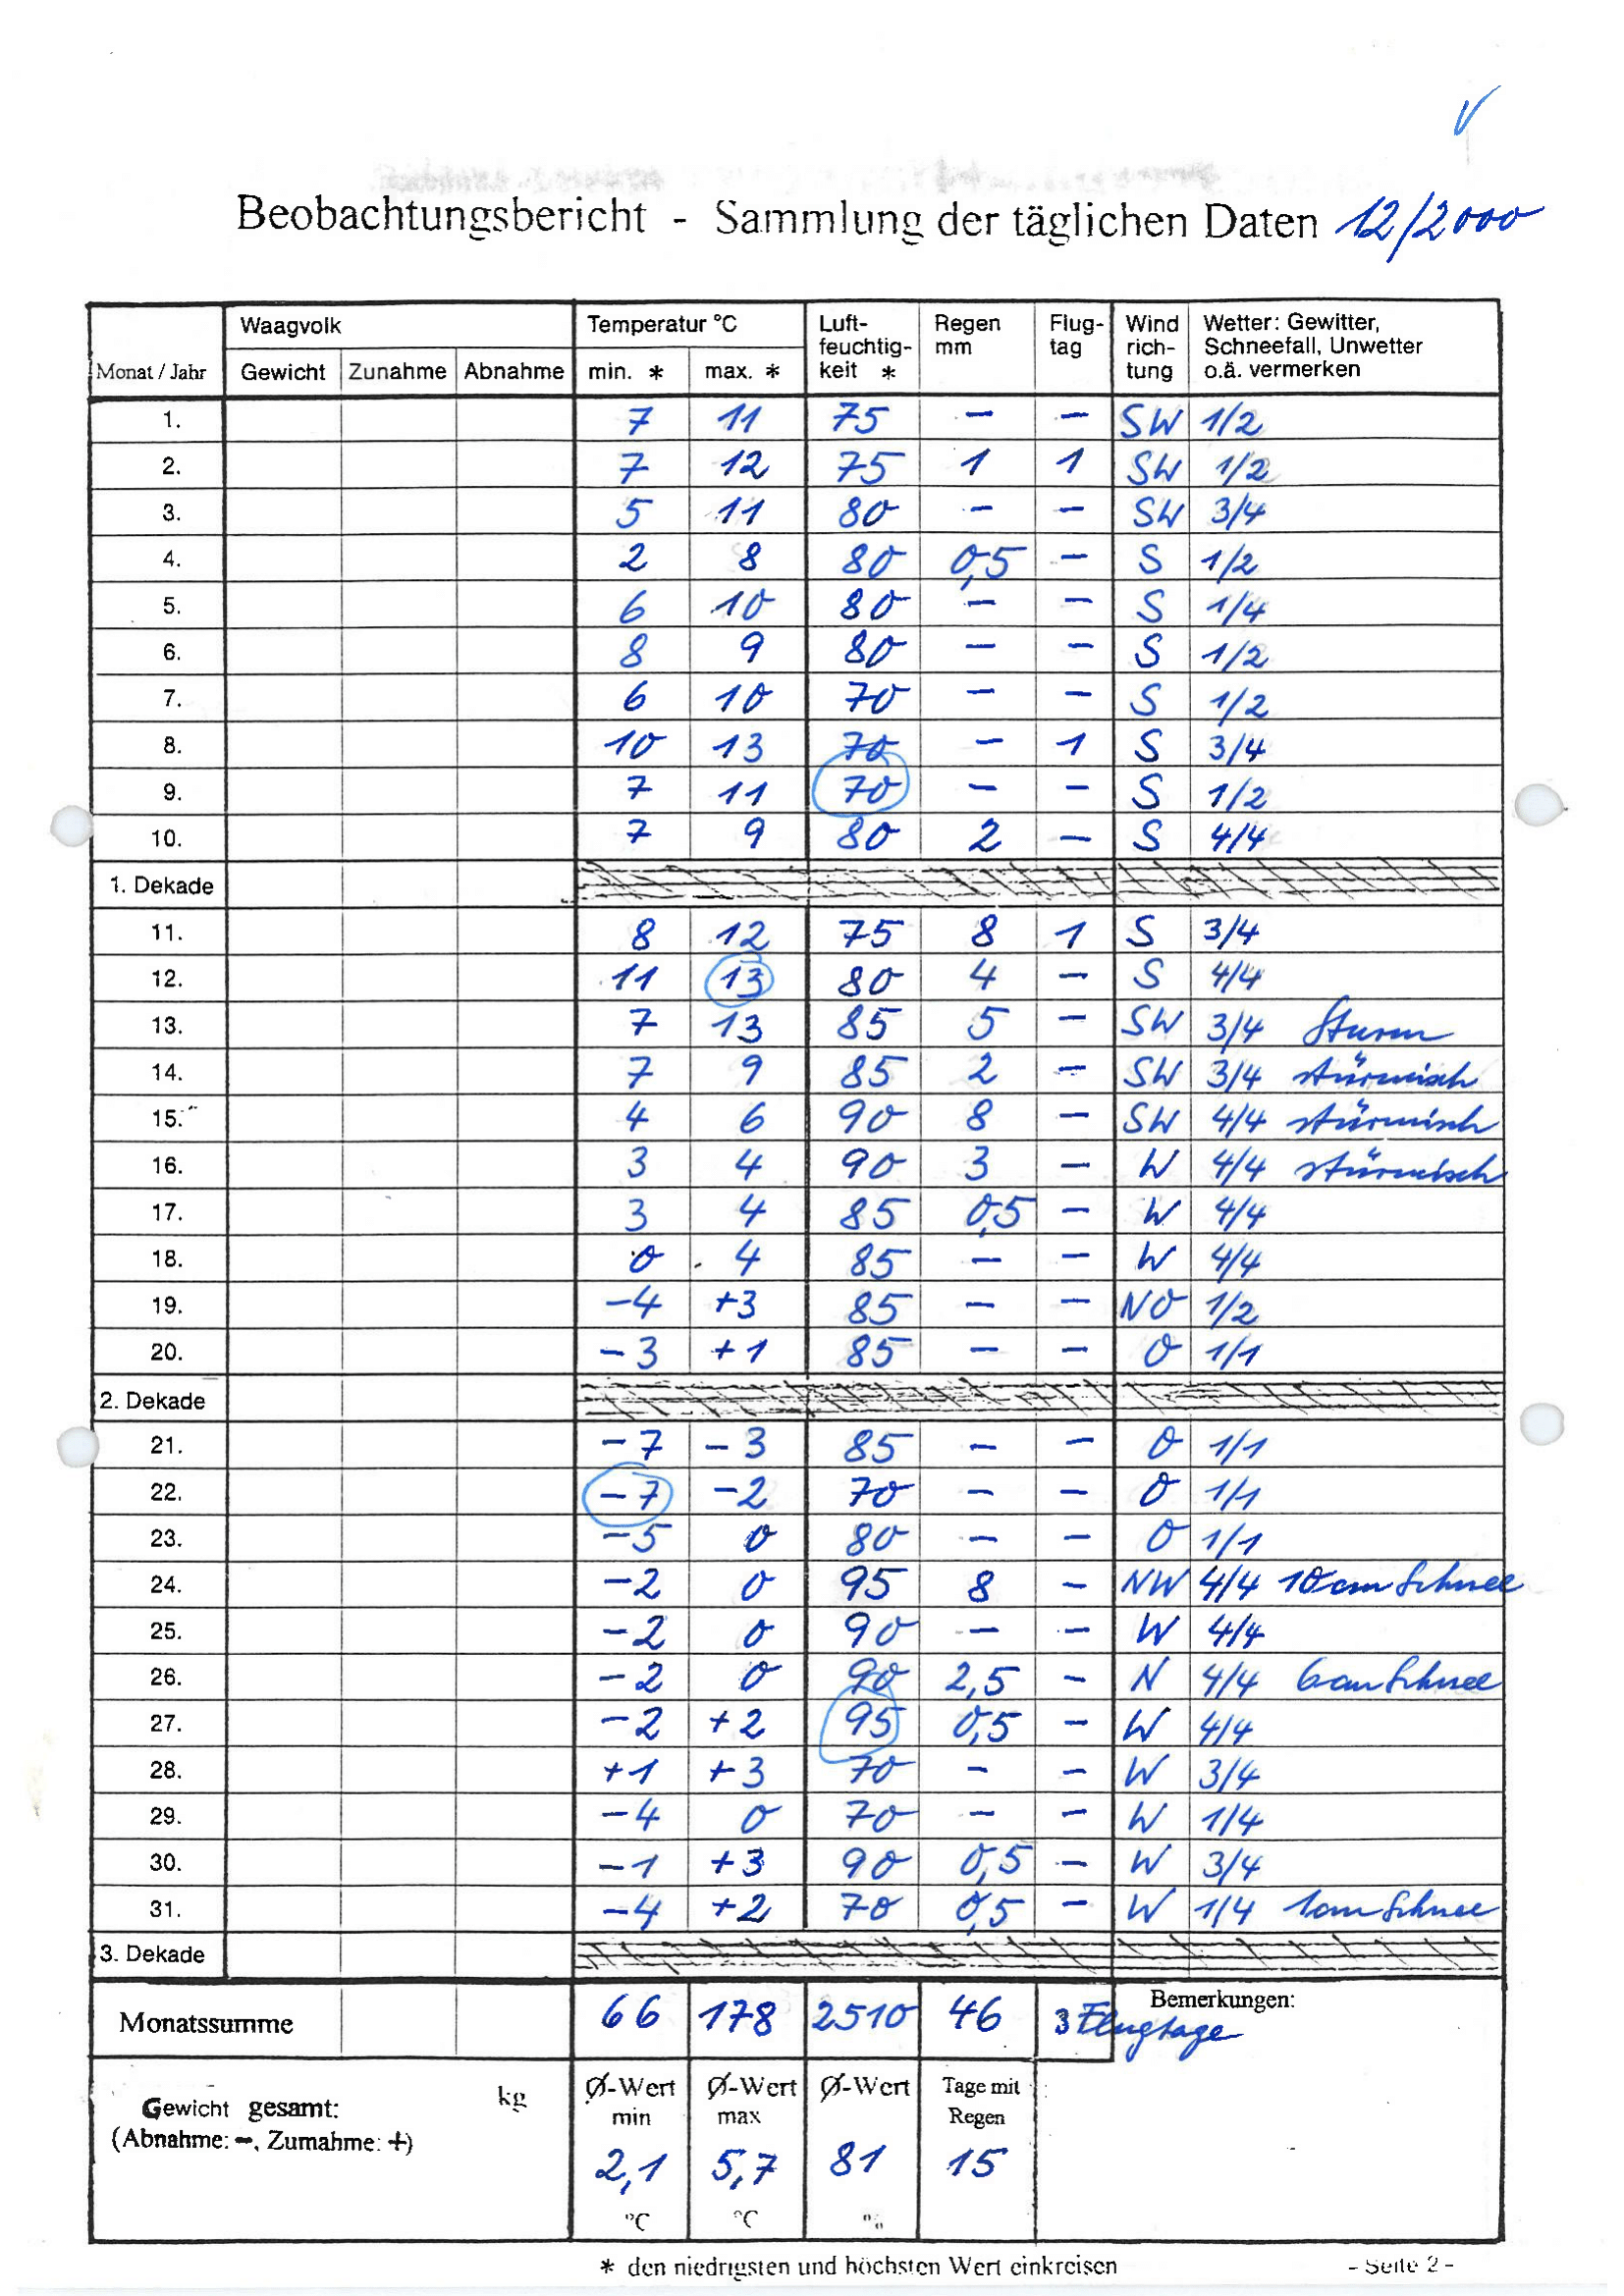 Beobachtungsbericht - Sammlung der täglichen Daten 12/2000
Monat / Jahr Waagvolk Temperatur °C Luft- Regen Flug- Wind Wetter: Gewitter,
feuchtig- mm tag rich- Schneefall, Unwetter
Gewicht Zunahme Abnahme min. * max. * keit * tung o.ä. vermerken
1. 7 11 75 – – SW 1/2
2. 7 12 75 1 1 SW 1/2
3. 5 11 80 – – SW 3/4
4. 2 8 80 0,5 – S 1/2
5. 6 10 80 – – S 1/4
6. 8 9 80 – – S 1/2
7. 6 10 70 – – S 1/2
8. 10 13 70 – 1 S 3/4
9. 7 11 70 – – S 1/2
10. 7 9 80 2 – S 4/4
1. Dekade
11. 8 12 75 8 1 S 3/4
12. 11 13 80 4 – S 4/4
13. 7 13 85 5 – SW 3/4 Sturm
14. 7 9 85 2 – SW 3/4 stürmisch
15. 4 6 90 8 – SW 4/4 stürmisch
16. 3 4 90 3 – W 4/4 stürmisch
17. 3 4 85 0,5 – W 4/4
18. 0 4 85 – – W 4/4
19. -4 +3 85 – – NO 1/2
20. -3 +1 85 – – O 1/1
2. Dekade
21. -7 -3 85 – – O 1/1
22. -7 -2 70 – – O 1/1
23. -5 0 80 – – O 1/1
24. -2 0 95 8 – NW 4/4 10 cm Schnee
25. -2 0 90 – – W 4/4
26. -2 0 90 2,5 – N 4/4 6 cm Schnee
27. -2 +2 95 0,5 – W 4/4
28. +1 +3 70 – – W 3/4
29. -4 0 70 – – W 1/4
30. -1 +3 90 0,5 – W 3/4
31. -4 +2 70 0,5 – W 1/4 1cm Schnee
3. Dekade
Monatssumme 66 178 2510 46 3 Flugtage Bemerkungen:
Gewicht gesamt: kg Ø-Wert Ø-Wert Ø-Wert Tage mit
(Abnahme: -, Zumahme: +) min max Regen
2,1 5,7 81 15
°C °C %
* den niedrigsten und höchsten Wert einkreisen - Seite 2 -